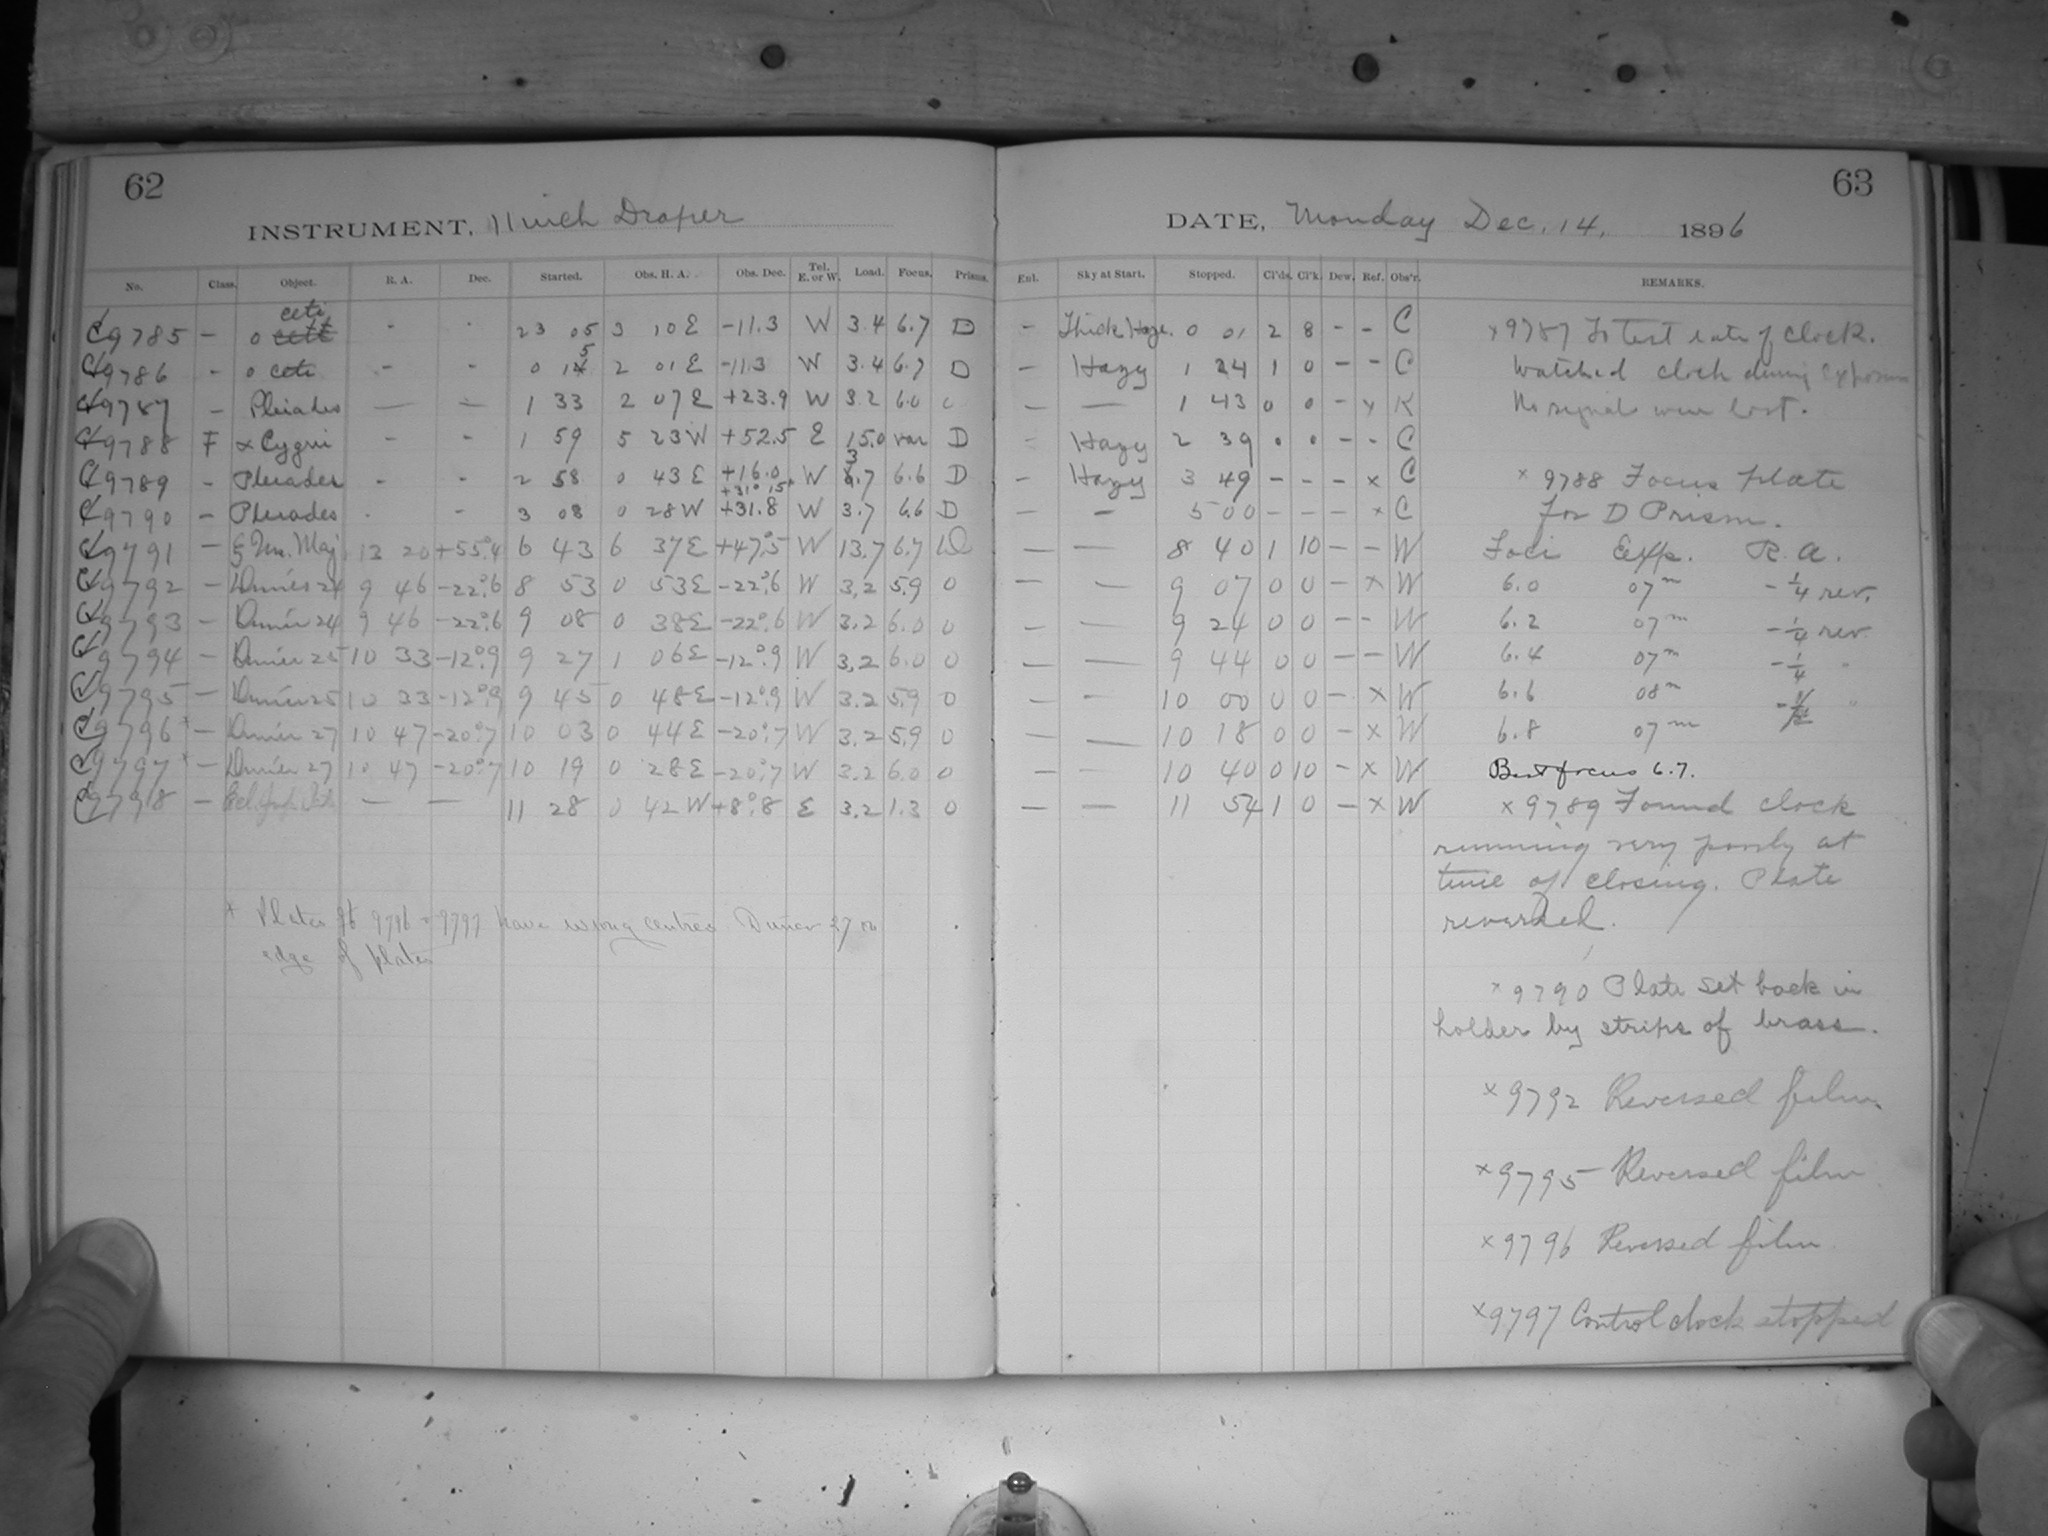 62
INSTRUMENT, 11 inch Draper
No. Class. Object. R. A. Dec. Started. Obs. H. A. Obs. Dec. Tel. E. or W. Load. Focus. Prisms.
ceti
C 9785 – o - - 23 05 3 10 E -11.3 W 3.4 6.7 D
C 9786 - o ceti - - 0 15 2 01 E -11.3 W 3.4 6.7 D
C 9787 – Pleiades — — 1 33 2 07 E +23.9 W 3.2 6.0 0
C 9788 F α Cygni - - 1 59 5 23 W +52.5 E 15.0 var D
C 9789 - Pleiades - - 2 58 0 43 E +16.0 W 3.7 6.6 D
+31° 15'
C 9790 – Pleiades - - 3 08 0 28 W +31.8 W 3.7 6.6 D
C 9791 – ξ Urs. Maj. 13 20 +55°.4 6 43 6 37 E +47°.5 W 13.7 6.7 D
C 9792 – Dunér 24 9 46 -22°.6 8 53 0 53 E -22°.6 W 3.2 5.9 0
C 9793 – Dunér 24 9 46 -22°.6 9 08 0 38 E -22°.6 W 3.2 6.0 0
C 9794 – Dunér 25 10 33 -12°.9 9 27 1 06 E -12°.9 W 3.2 6.0 0
C 9795 – Dunér 25 10 33 -12°.9 9 45 0 48 E -12°.9 W 3.2 5.9 0
C 9796* – Dunér 27 10 47 -20°.7 10 03 0 44 E -20°.7 W 3.2 5.9 0
C 9797* – Dunér 27 10 47 -20°.7 10 19 0 28 E -20°.7 W 3.2 6.0 0
C 9798 – — — 11 28 0 42 W +8°.8 E 3.2 1.3 0
* Plates 9796 + 9797 have wrong centres Dunér 27 on
edge of plates
63
DATE, Monday Dec. 14, 1896
Enl. Sky at Start. Stopped. Cl'ds. Cl'k. Dew. Ref. Obs'r. REMARKS.
– Thick Haze. 0 01 2 8 - - C
– Hazy 1 24 1 0 - - C
– — 1 43 0 0 - x K
– Hazy 2 39 0 0 - - C
– Hazy 3 49 - - - x C
– – 5 00 - - - x C
– — 8 40 1 10 - - W
– — 9 07 0 0 - x W
– — 9 24 0 0 - - W
– — 9 44 0 0 - - W
– — 10 00 0 0 - x W
– — 10 18 0 0 - x W
– — 10 40 0 10 - x W
– — 11 54 1 0 - x W
x 9787 To test rate of clock.
Watched clock during exposure
No signals were lost.
x 9788 Focus plate
for D Prism.
Foci Exp. R. A.
6.0 07m -1/4 rev.
6.2 07m -1/4 rev
6.4 07m -1/4 "
6.6 08m "
6.8 07m
Best focus 6.7.
x 9789 Found clock
running very poorly at
time of closing. Plate
reversed.
x 9790 Plate set back in
holder by strips of brass.
x 9792 Reversed film.
x 9795 Reversed film
x 9796 Reversed film
x 9797 Control clock stopped